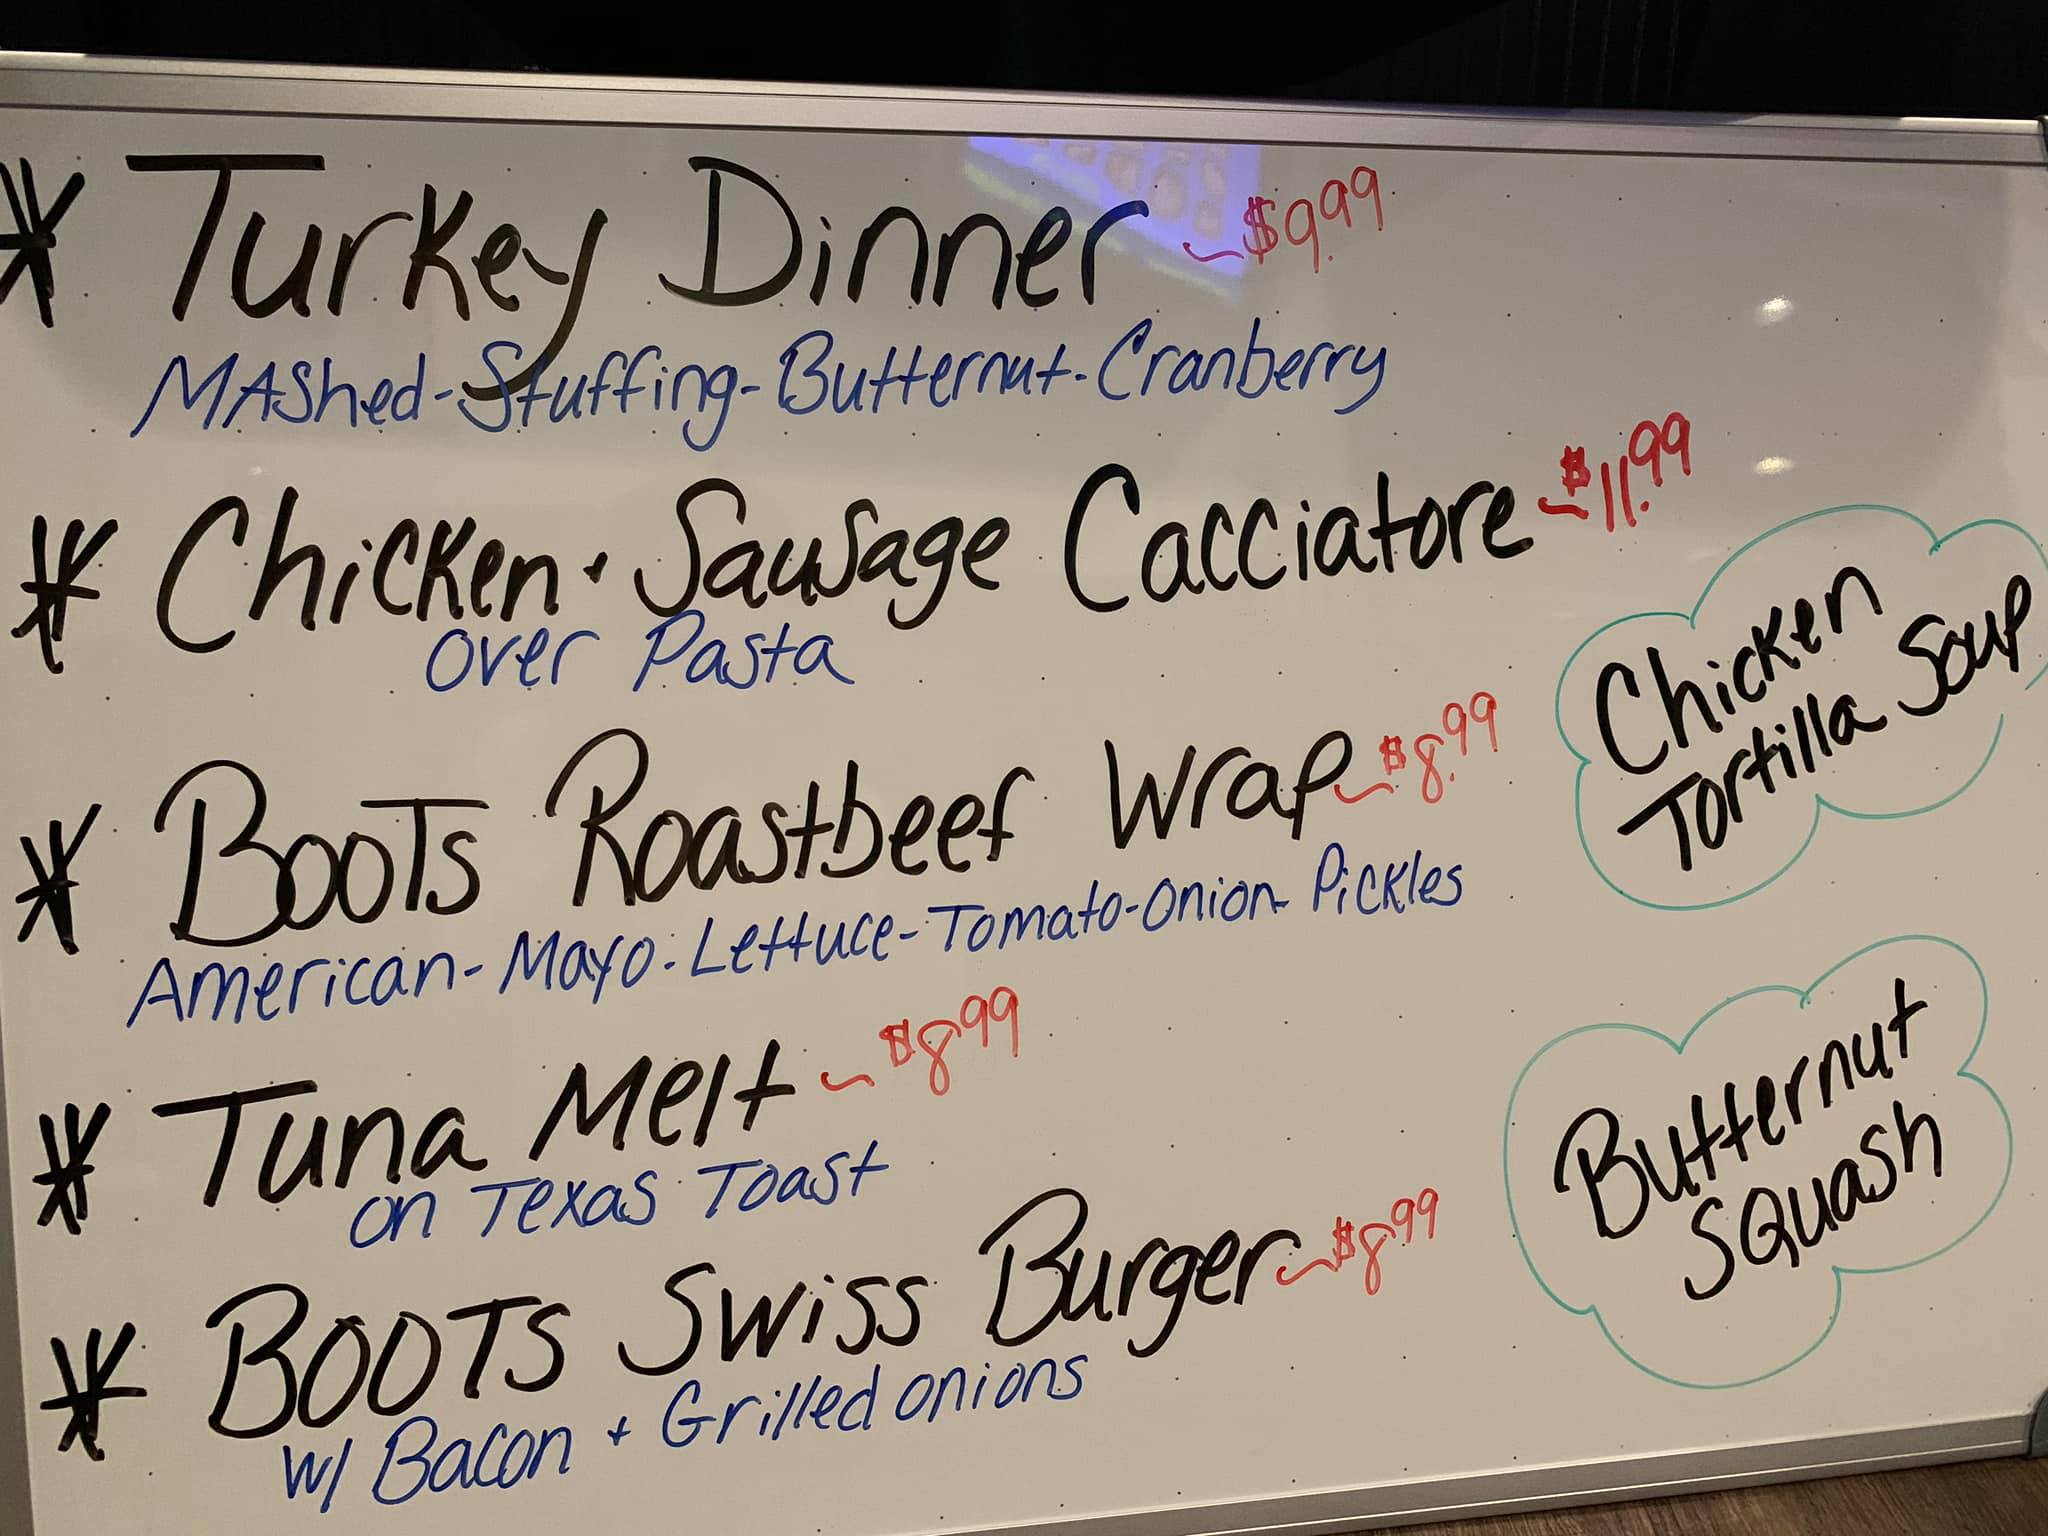 * Turkey Dinner ~$9.99
MAShed-Stuffing-Butternut-Cranberry
* Chicken + Sausage Cacciatore ~$11.99
over Pasta
* BooTs Roastbeef Wrap ~$8.99
American-Mayo-Lettuce-Tomato-Onion-Pickles
* Tuna Melt ~$8.99
on Texas Toast
* BOOTS Swiss Burger ~$8.99
w/ Bacon + Grilled onions
Chicken
Tortilla Soup
Butternut
Squash